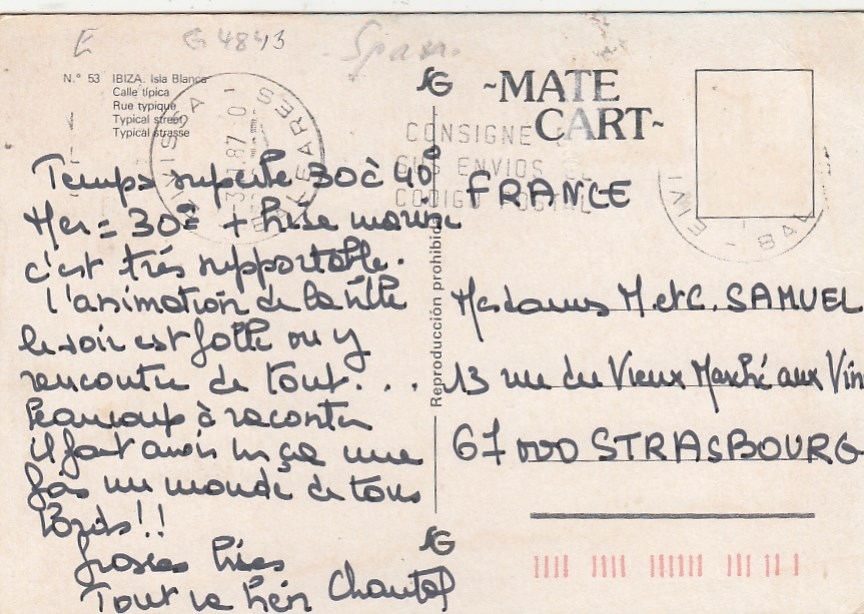 E G 4843 Spain
N.° 53 IBIZA. Isla Blanca
Calle típica
Rue typique
Typical street
Typical strasse
SG ~MATE
CART~
EIVISSA - BALEARES
87
CONSIGNE
SUS ENVIOS EL
CODIGO POSTAL
EIVI - BA
Temps superbe 30 à 40°
Mer = 30° + brise marine
c'est très supportable.
l'animation de la ville
le soir est folle on y
rencontre de tout...
Beaucoup à raconter
il faut avoir vu ça une
fois un monde de tous
bords!!
Grosses bises
Tout va bien Chantal
Reproducción prohibida
FRANCE
Mesdames M et C. SAMUEL
13 rue du Vieux Marché aux Vin
67000 STRASBOURG
SG